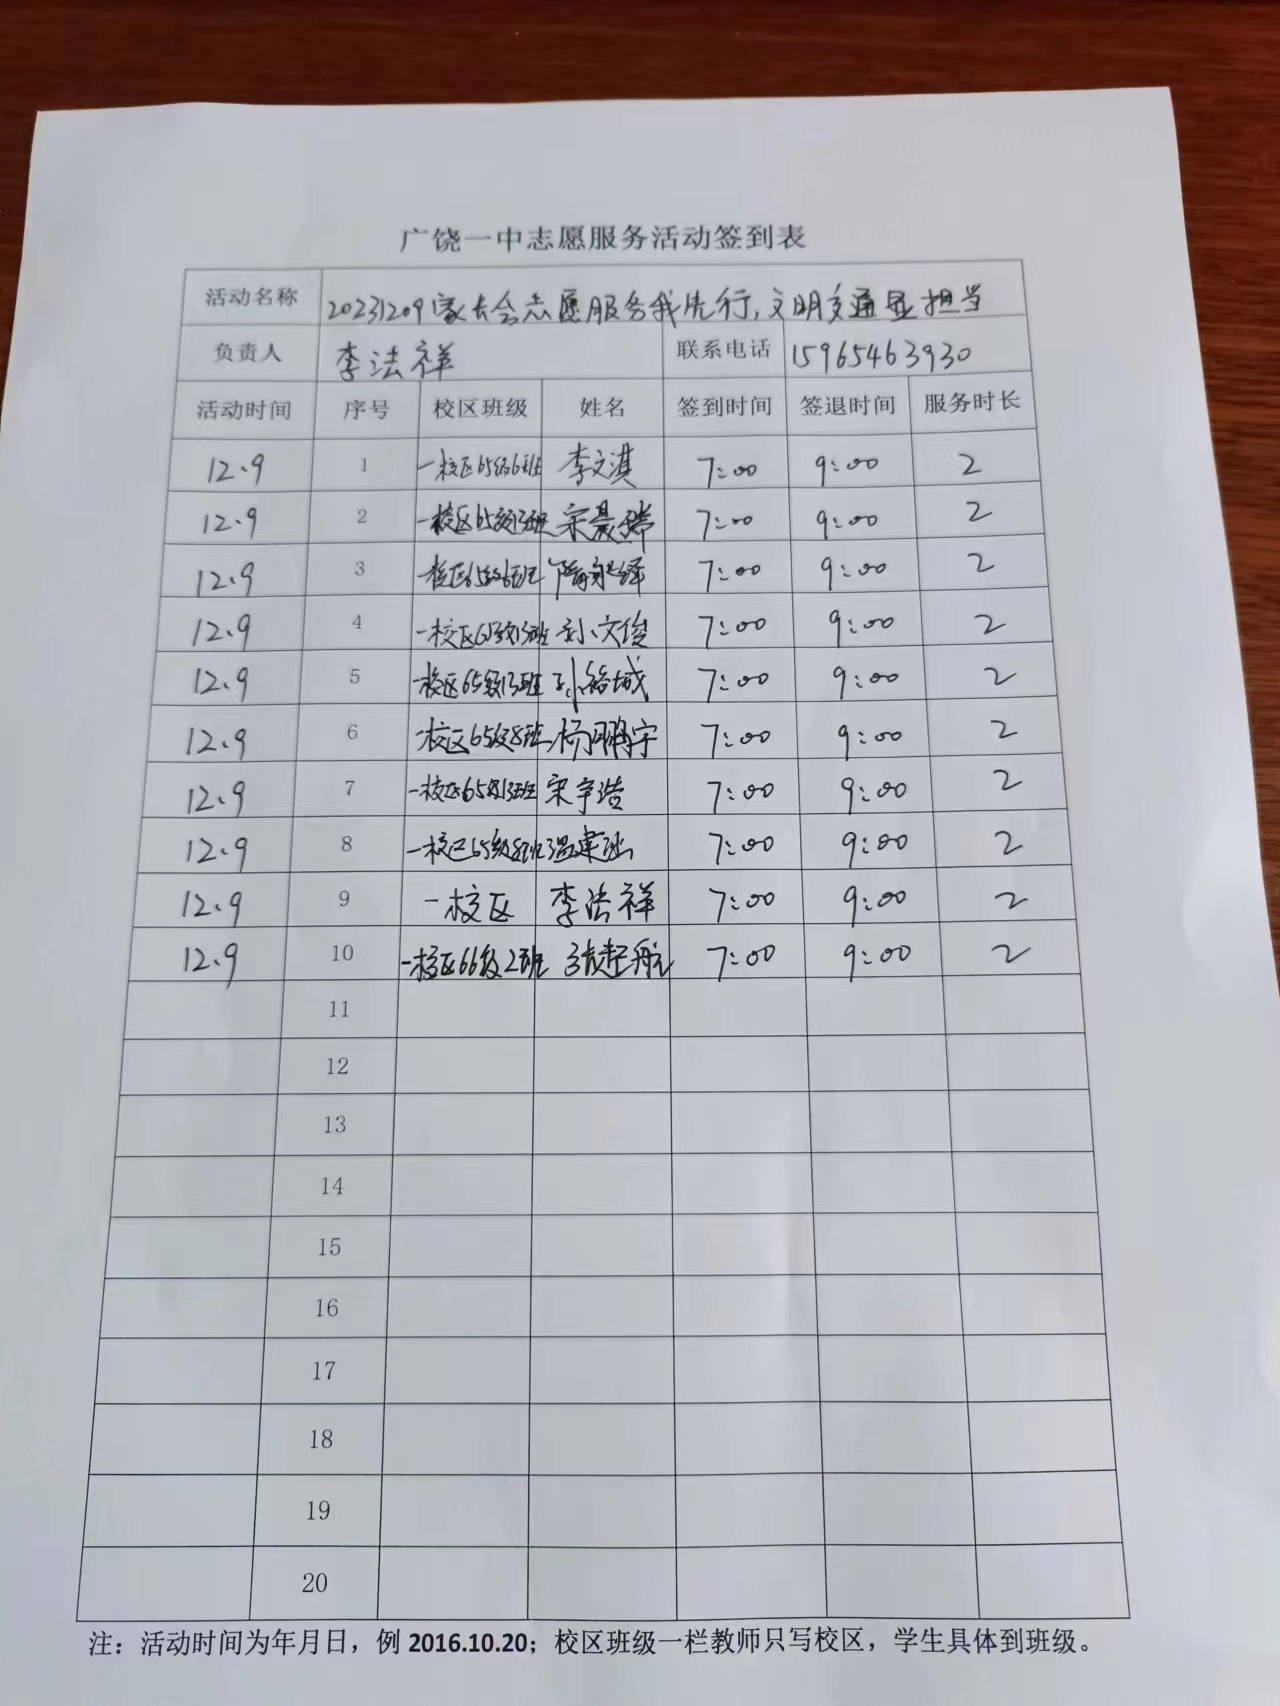 广饶一中志愿服务活动签到表
活动名称 20231209家长会志愿服务我先行,文明交通显担当
负责人 李法祥 联系电话 15965463930
活动时间 序号 校区班级 姓名 签到时间 签退时间 服务时长
12.9 1 一校区65级6班 李文淇 7:00 9:00 2
12.9 2 一校区65级13班 宋晨瑞 7:00 9:00 2
12.9 3 一校区65级6班 隋永绎 7:00 9:00 2
12.9 4 一校区65级13班 孙文俊 7:00 9:00 2
12.9 5 一校区65级13班 孙铭城 7:00 9:00 2
12.9 6 一校区65级8班 杨鹏宇 7:00 9:00 2
12.9 7 一校区65级13班 宋宇浩 7:00 9:00 2
12.9 8 一校区65级8班 7:00 9:00 2
12.9 9 一校区 李法祥 7:00 9:00 2
12.9 10 一校区66级2班 7:00 9:00 2
11
12
13
14
15
16
17
18
19
20
注：活动时间为年月日，例 2016.10.20；校区班级一栏教师只写校区，学生具体到班级。